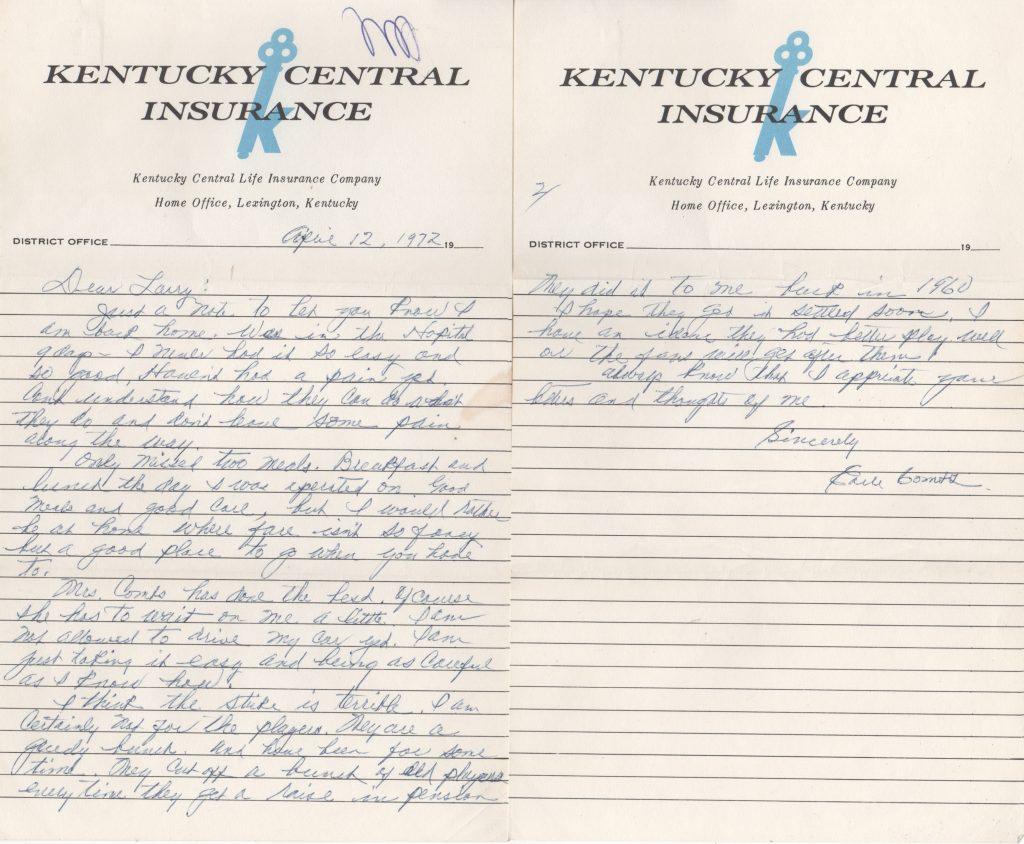 KENTUCKY CENTRAL
INSURANCE
Kentucky Central Life Insurance Company
Home Office, Lexington, Kentucky
DISTRICT OFFICE April 12, 1972 19
Dear Larry:
Just a note to let you know I
am back home. Was in the Hospital
I never had it so easy and
so good. Haven't had a pain yet.
Cant understand how they can do what
they do and don't leave some pain
along the way.
Only missed two meals. Breakfast and
lunch the day I was operated on. Good
meals and good care, but I would rather
be at home where fare isn't so fancy
but a good place to go when you have
to.
Mrs. Combs has done the best. Of course
she has to wait on me a little. I am
not allowed to drive my car yet. I am
just taking it easy and being as careful
as I know how.
I think the strike is terrible. I am
certainly not for the players. They are a
greedy bunch. And have been for some
time. They cut off a bunch of old players
every time they get a raise in pension
KENTUCKY CENTRAL
INSURANCE
Kentucky Central Life Insurance Company
Home Office, Lexington, Kentucky
2/
DISTRICT OFFICE 19
They did it to me back in 1960
I hope they get it settled soon. I
have an idea they had better play well
or the fans will get after them
always know that I appriate your
letters and thoughts of me.
Sincerely
Earle Combs